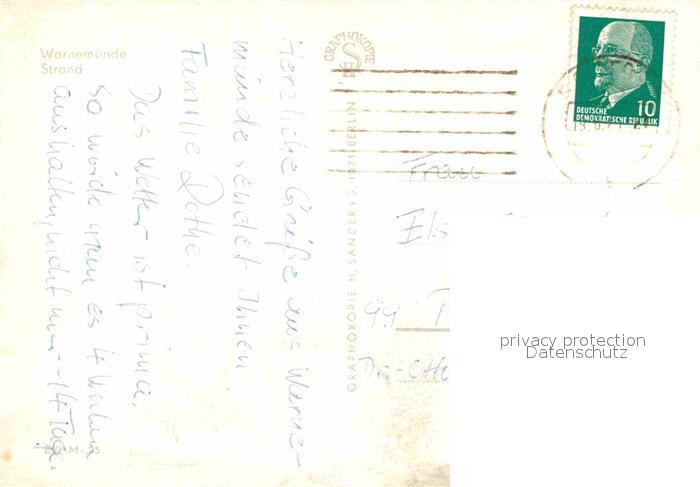 Warnemünde
Strand
Herzliche Grüße aus Warne-
münde sendet Ihnen
Familie Dothe.
Das Wetter ist prima,
so würde man es 4 Wochen
aushalten, nicht nur 14 Tage.
GRAPHOKOPIE
GRAPHOKOPIE H. SANDER KG BERLIN
DEUTSCHE
DEMOKRATISCHE REPUBLIK
10
Frau
99
privacy protection
Datenschutz